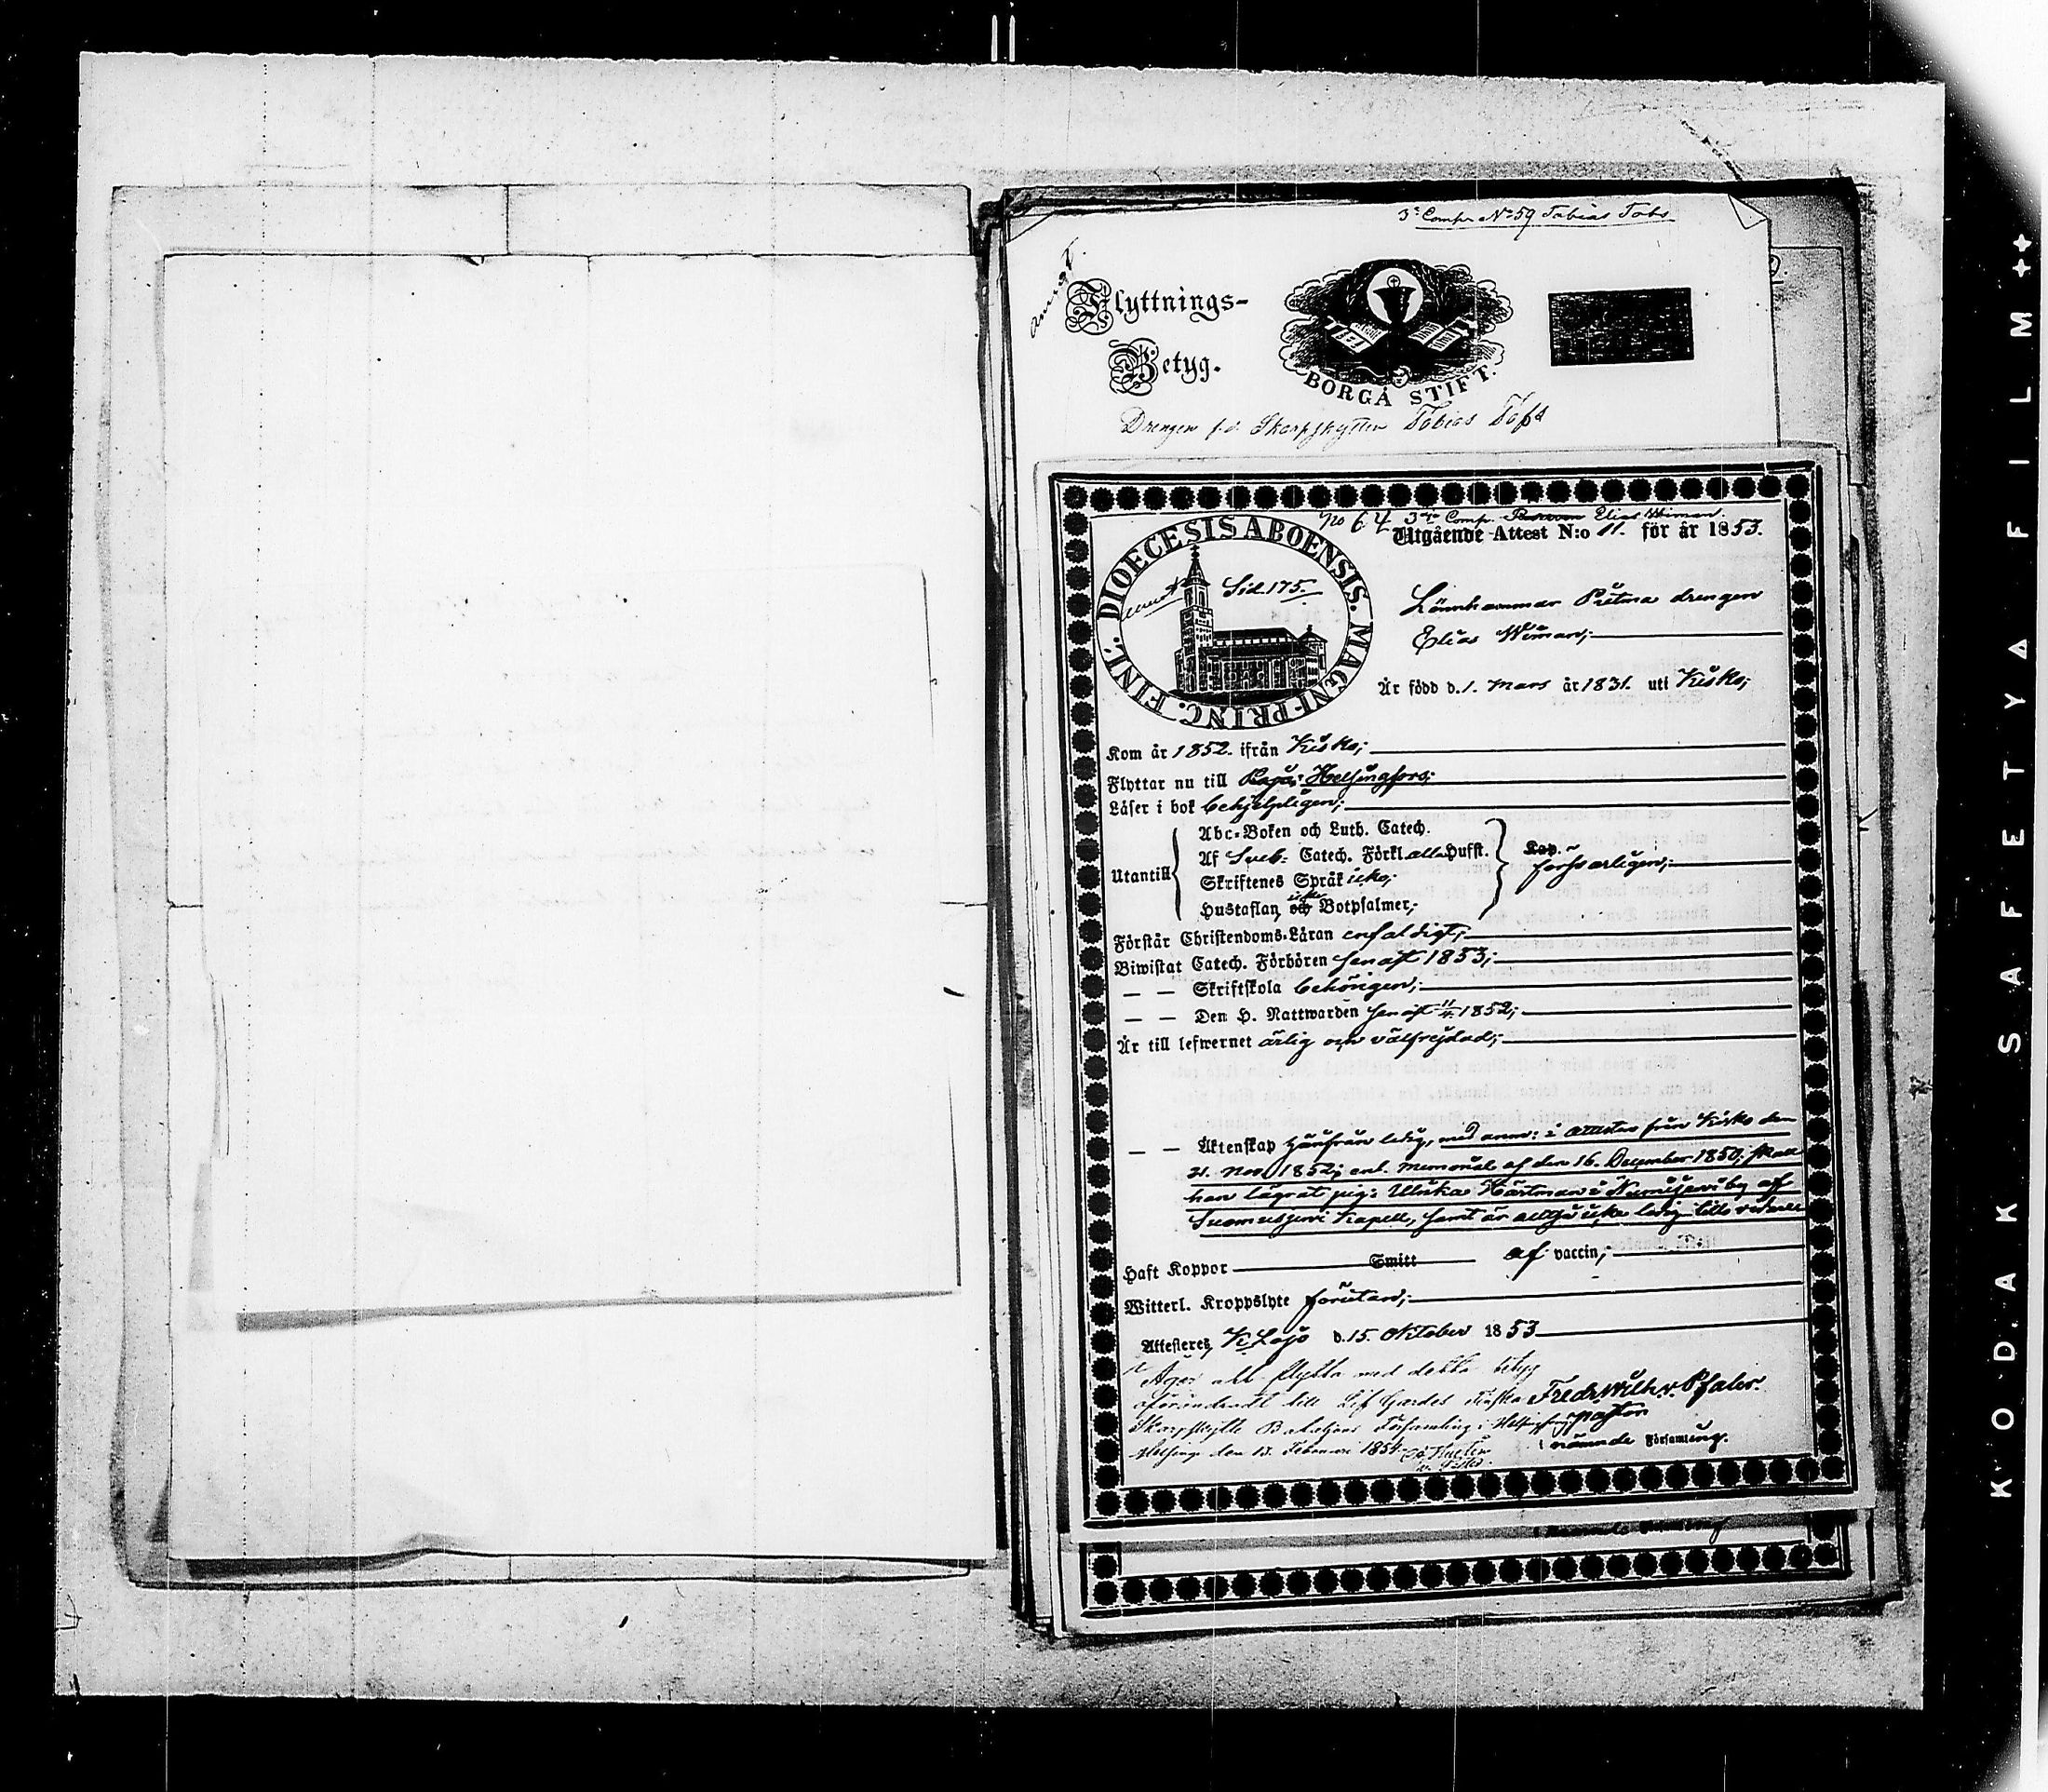 3e Comp N:o 59 Tobias Tobs
anmgt.
Flyttnings-
Betyg.
BORGÅ STIFT.
Drengen f.d. Skarpskytten Tobias Tofs
No 64 3dje Comp. Elias Wiman.
Utgående Attest N:o 11. för år 1853.
DIOECESIS ABOENSIS. MAGNI PRINC. FINL.
Sid. 175.
Lönnhammar Pütma drengen
Elias Wiman;
Är född d. 1. Mars år 1831. uti Kisko;
Kom år 1852. ifrån Kisko;
Flyttar nu till Helsingfors;
Läser i bok behjelpligen;
Abc-Boken och Luth. Catech.
Af Sveb: Catech. Förkl. alla Hufst.
Utantill
Skriftenes Språk icke;
försvarligen;
Hustaflan, icke och Botpsalmer;
Förstår Christendoms-Läran enfaldigt;
Biwistat Catech. Förhören senast 1853;
— — Skriftskola behörigen;
— — Den H. Nattwarden senast 11/4 1852;
Är till lefwernet ärlig och välfrejdad;
— — Äktenskap härifrån ledig, med anm: i attesten från Kisko den
21. Nov. 1852; enl. Memorial af den 16. December 1850, skall
han lägrat pig: Ulrika Hartman i by af
Suomusjervi Kapell, samt är alltså icke ledig till vidare
Haft Koppor Smitt af vaccin;
Witterl. Kroppslyte förutan;
Attesterer, K. Lojo d. 15. Oktober 1853
Äger att flytta med detta betyg
oförändradt till Lif Gardes Finska
Skarpskytte Bataljons Församling i Helsingfors
Helsinge den 13. Februari 1854.
Fredr. Wilh. v. Pfaler.
pastor
i nämnde Församling.
KODAK SAFETY FILM ++